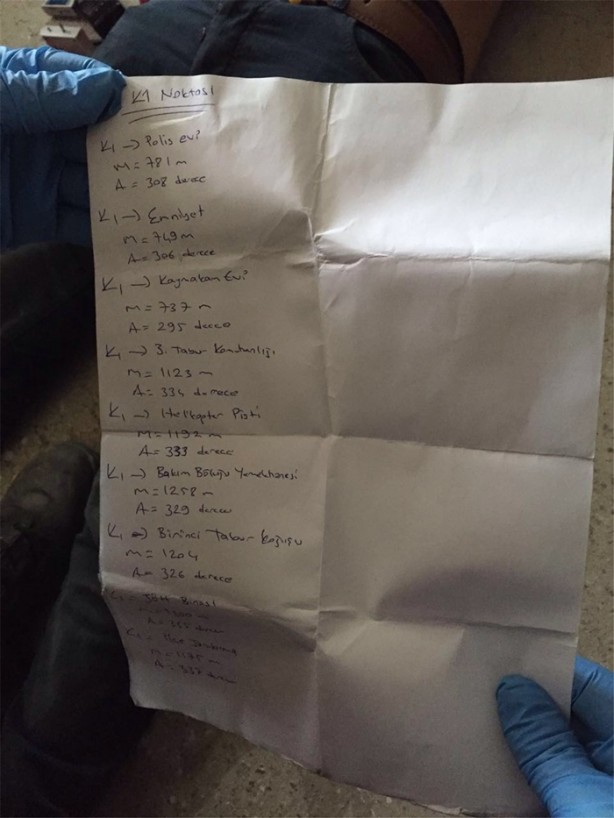 K1 Noktası
K1 → Polis evi
m = 781 m
A = 308 derece
K1 → Emniyet
m = 749 m
A = 306 derece
K1 → Kaymakam Evi
m = 737 m
A = 295 derece
K1 → 3. Tabur Komutanlığı
m = 1123 m
A = 334 derece
K1 → Helikopter Pisti
m = 1192 m
A = 333 derece
K1 → Bakım Bölüğü Yemekhanesi
m = 1258 m
A = 329 derece
K1 → Birinci Tabur Koğuşu
m = 1204
A = 326 derece
Binası
A = 335 derece
K1 → İlçe Jandarma
m = 1175 m
A = 337 derece